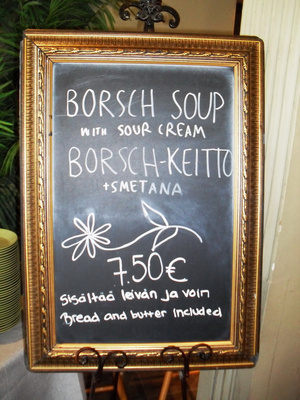 BORSCH SOUP
WITH SOUR CREAM
BORSCH-KEITTO
+SMETANA
7.50€
Sisältää leivän ja voin
Bread and butter included